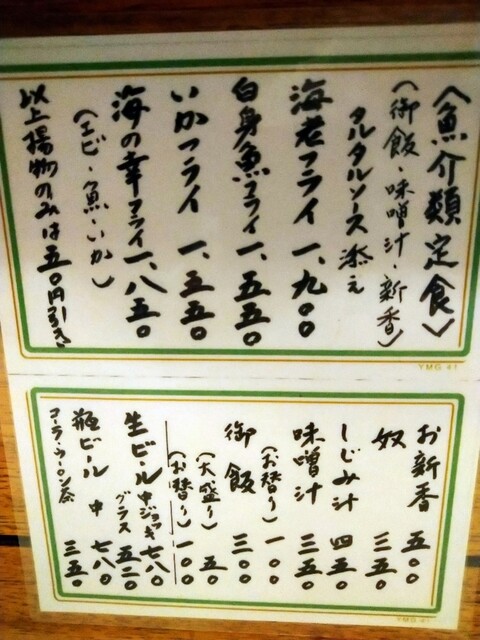 〈魚介類定食〉
（御飯・味噌汁・新香）
タルタルソース添え
海老フライ 一、九〇〇
白身魚フライ 一、五五〇
いかフライ 一、五五〇
海の幸フライ 一、八五〇
（エビ・魚・いか）
以上揚物のみは五〇円引き
YMG #1
お新香 五〇〇
奴 三五〇
しじみ汁 四五〇
味噌汁 三五〇
（お替り） 一〇〇
御飯 三〇〇
（大盛り） 五〇
（お替り） 一〇〇
生ビール 中ジョッキ 七八〇
グラス 五二〇
瓶ビール 中 七八〇
コーラ・ウーロン茶 三五〇
YMG #1